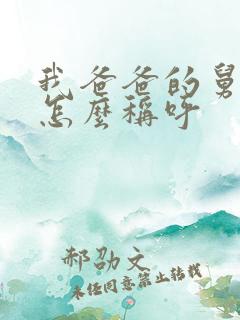 我爸爸的舅
怎麼稱呼
郝劭文
未经同意禁止转载